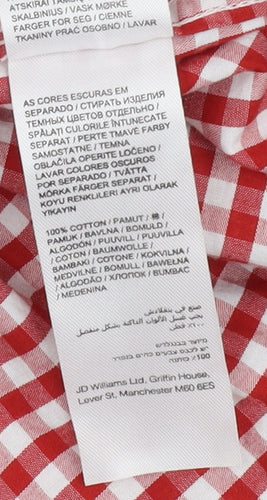 ATSKIRAI / TAMSIOS
SKALBINIUS / VASK MØRKE
FARGER FOR SEG / CIEMNE
TKANINY PRAĆ OSOBNO / LAVAR
AS CORES ESCURAS EM
SEPARADO / СТИРАТЬ ИЗДЕЛИЯ
ТЕМНЫХ ЦВЕТОВ ОТДЕЛЬНО /
SPĂLAȚI CULORILE ÎNTUNECATE
SEPARAT / PERTE TMAVÉ FARBY
SAMOSTATNE / TEMNA
OBLAČILA OPERITE LOČENO /
LAVAR COLORES OSCUROS
POR SEPARADO / TVÄTTA
MÖRKA FÄRGER SEPARAT /
KOYU RENKLILERI AYRI OLARAK
YIKAYIN
100% COTTON / PAMUT / 棉 /
PAMUK / BAVLNA / BOMULD /
ALGODÓN / PUUVILL / PUUVILLA
/ COTON / BAUMWOLLE /
BAMBAKI / COTONE / KOKVILNA /
MEDVILNĖ / BOMULL / BAWEŁNA
/ ALGODÃO / ХЛОПОК / BUMBAC
/ MEDENINA
صنع في بنغلاديش
تغسل الألوان الداكنة بشكل منفصل
١٠٠٪ قطن
מיוצר בבנגלדש
יש לכבס צבעים כהים בנפרד
100% כותנה
JD Williams Ltd, Griffin House,
Lever St, Manchester M60 6ES